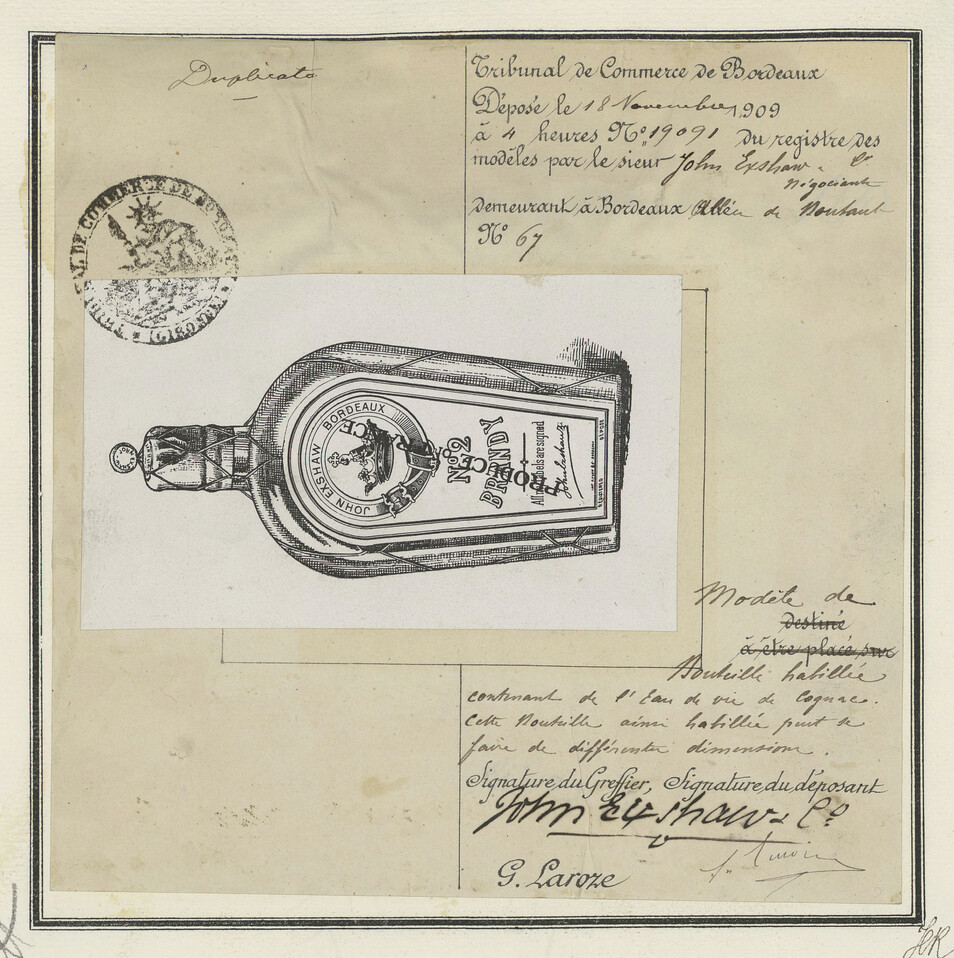 Duplicata
Tribunal de Commerce de Bordeaux
Déposé le 18 Novembre 1909
à 4 heures Nº 19091 du registre des
modèles par le sieur John Exshaw & Cº
Négociants
demeurant à Bordeaux Allées de Boutaut
Nº 67
TRIBUNAL DE COMMERCE DE BORDEAUX
(GIRONDE)
JOHN EXSHAW BORDEAUX
Nº 2
BRANDY
PRODUCE OF
All my labels are signed
John Exshaw
Modèle de
destiné
à être placé sur
Bouteille habillée
contenant de l'Eau de vie de Cognac.
Cette Bouteille ainsi habillée peut se
faire de différentes dimensions.
Signature du Greffier, Signature du déposant
John Exshaw & Cº
G. Laroze
HR